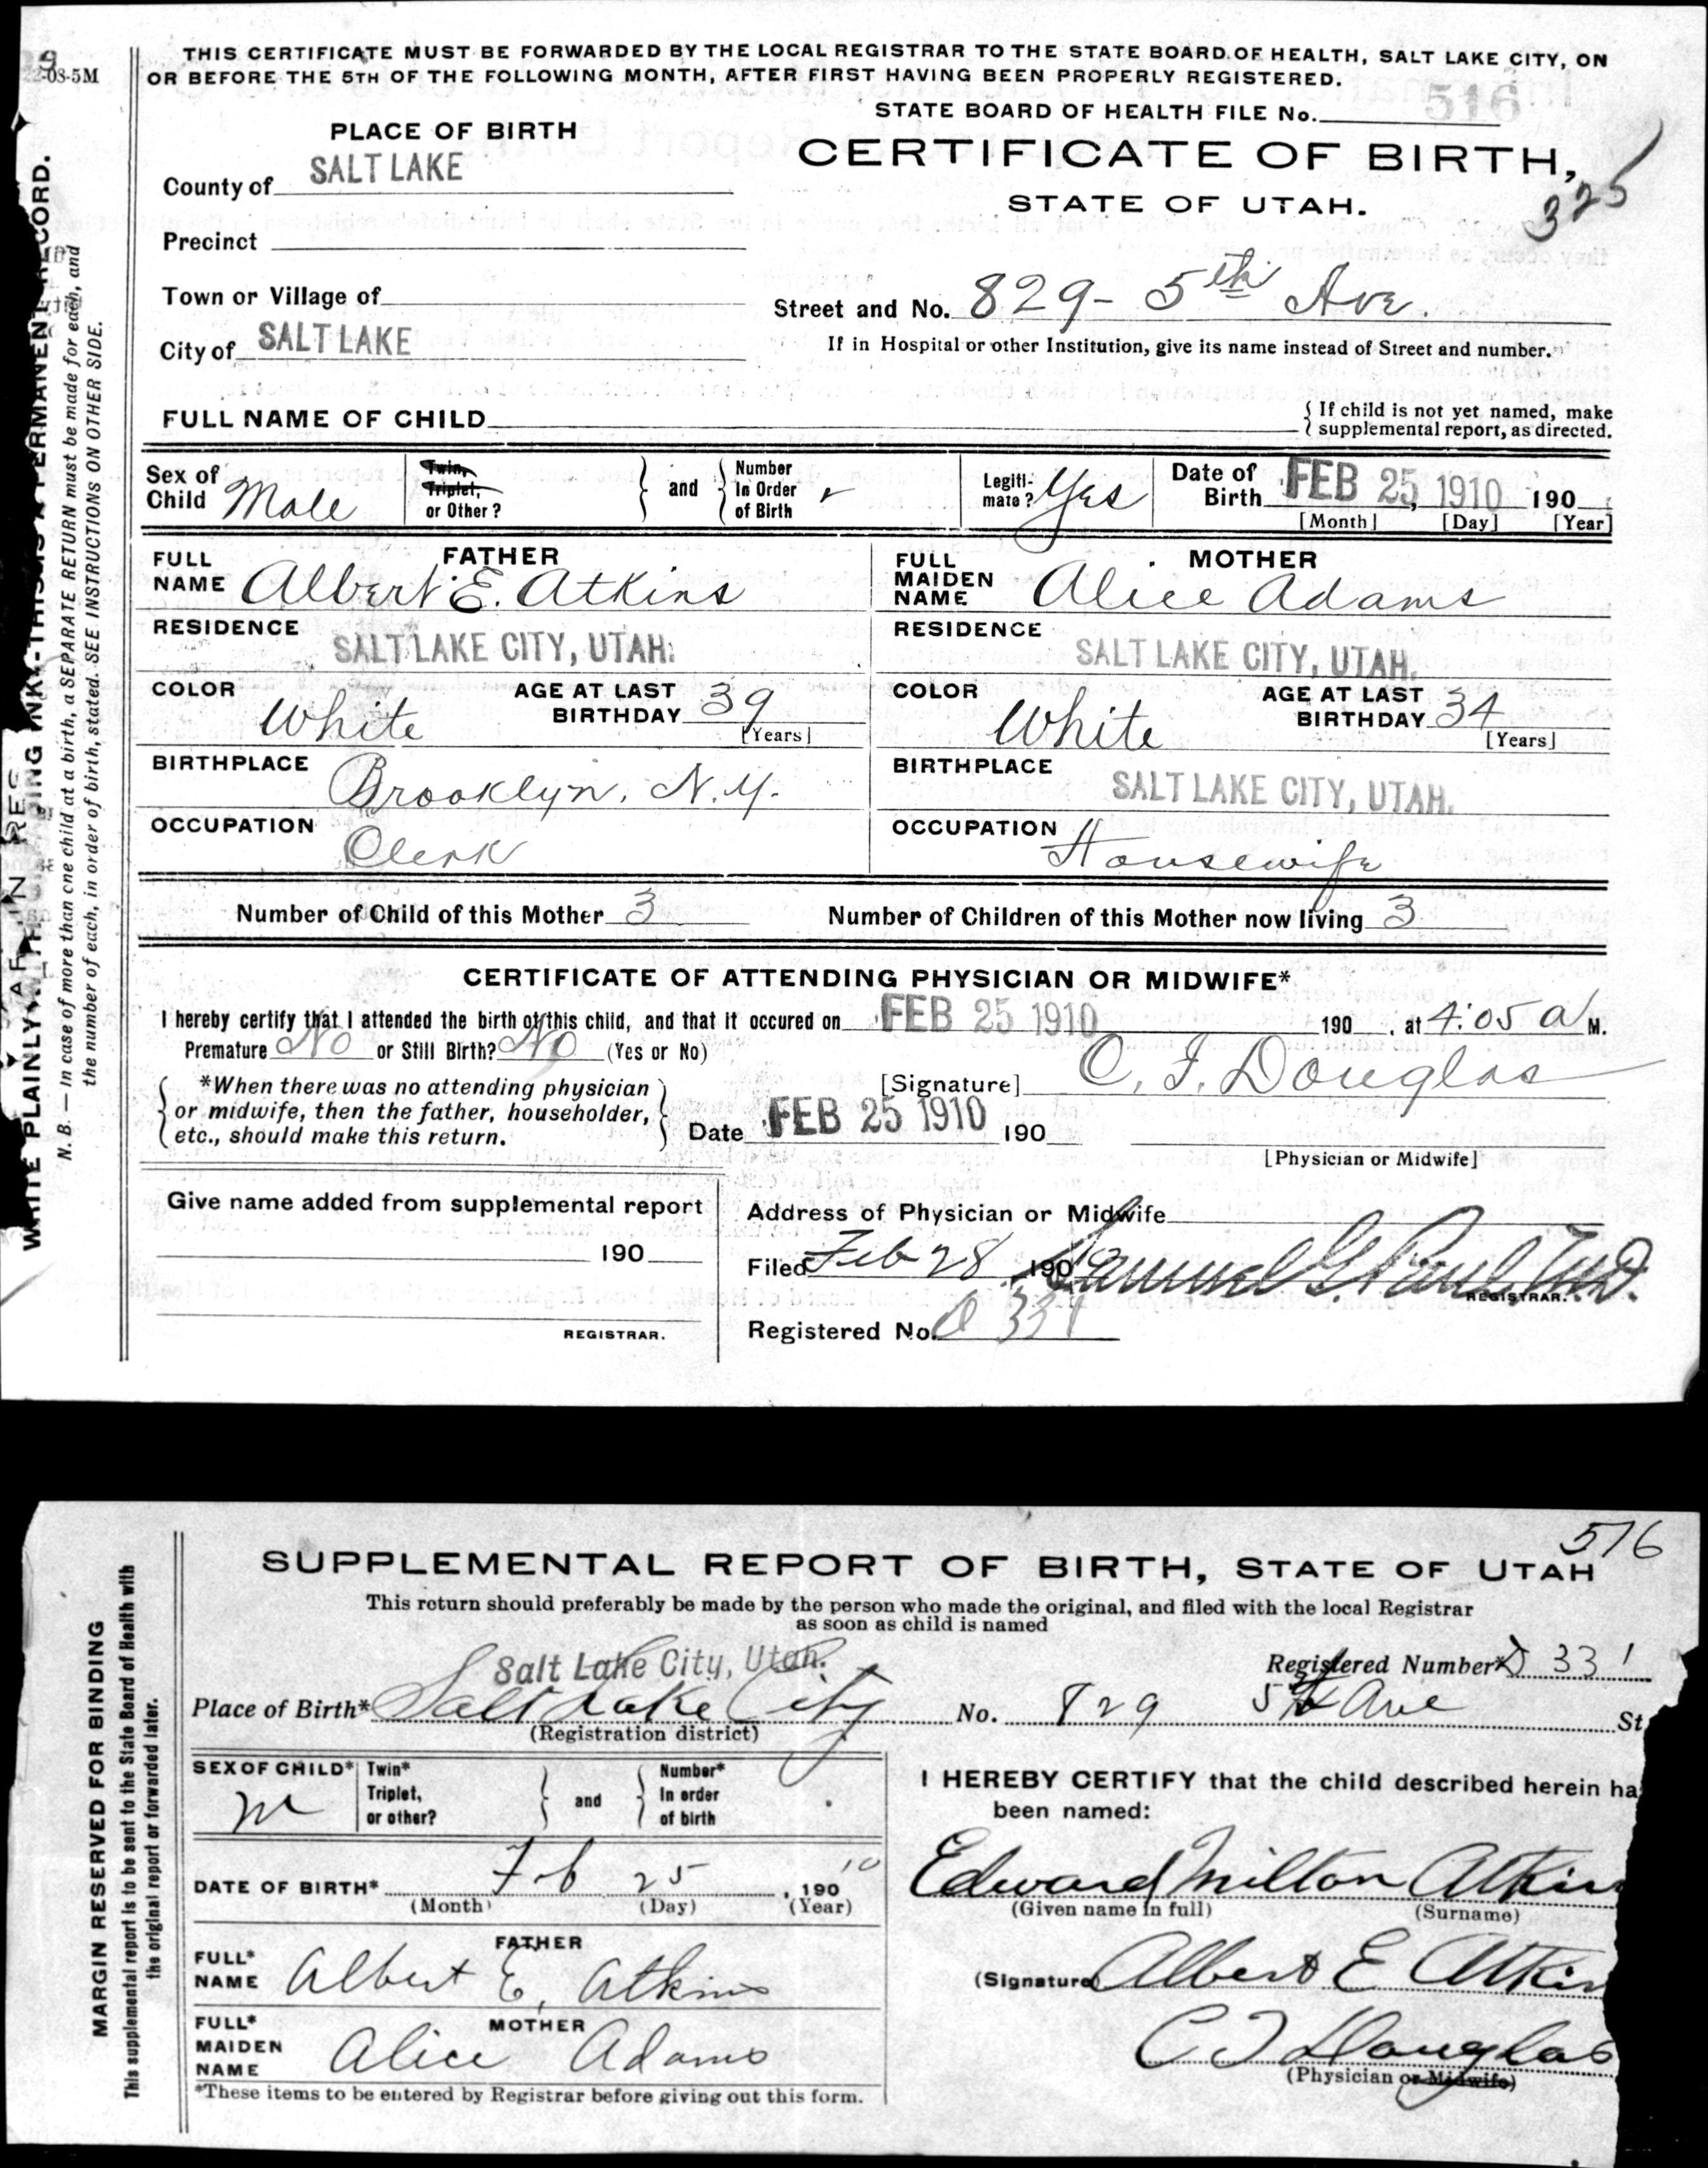 THIS CERTIFICATE MUST BE FORWARDED BY THE LOCAL REGISTRAR TO THE STATE BOARD OF HEALTH, SALT LAKE CITY, ON
OR BEFORE THE 5TH OF THE FOLLOWING MONTH, AFTER FIRST HAVING BEEN PROPERLY REGISTERED.
08-5M
STATE BOARD OF HEALTH FILE No. 516
PLACE OF BIRTH
CERTIFICATE OF BIRTH,
STATE OF UTAH.
325
County of SALT LAKE
Precinct
Town or Village of
Street and No. 829- 5th Ave.
City of SALT LAKE
If in Hospital or other Institution, give its name instead of Street and number.
FULL NAME OF CHILD
If child is not yet named, make
supplemental report, as directed.
Sex of Child Male
Twin, Triplet, or Other?
and
Number In Order of Birth
Legiti-mate? Yes
Date of Birth FEB 25, 1910 190
[Month] [Day] [Year]
FATHER
FULL NAME Albert E. Atkins
RESIDENCE SALT LAKE CITY, UTAH.
COLOR White
AGE AT LAST BIRTHDAY 39
[Years]
BIRTHPLACE Brooklyn, N.Y.
OCCUPATION Clerk
MOTHER
FULL MAIDEN NAME Alice Adams
RESIDENCE SALT LAKE CITY, UTAH.
COLOR White
AGE AT LAST BIRTHDAY 34
[Years]
BIRTHPLACE SALT LAKE CITY, UTAH.
OCCUPATION Housewife
Number of Child of this Mother 3
Number of Children of this Mother now living 3
CERTIFICATE OF ATTENDING PHYSICIAN OR MIDWIFE*
I hereby certify that I attended the birth of this child, and that it occured on FEB 25 1910 190 , at 4:05 a M.
Premature No or Still Birth? No (Yes or No)
*When there was no attending physician
or midwife, then the father, householder,
etc., should make this return.
[Signature] C. F. Douglas
Date FEB 25 1910 190
[Physician or Midwife]
Give name added from supplemental report
190
REGISTRAR.
Address of Physician or Midwife
Filed Feb 28 190 Samuel G. Paul, M.D.
REGISTRAR.
Registered No. D 331
WRITE PLAINLY WITH UNFADING INK-THIS IS A PERMANENT RECORD.
N. B. — In case of more than one child at a birth, a SEPARATE RETURN must be made for each, and
the number of each, in order of birth, stated. SEE INSTRUCTIONS ON OTHER SIDE.
516
SUPPLEMENTAL REPORT OF BIRTH, STATE OF UTAH
This return should preferably be made by the person who made the original, and filed with the local Registrar
as soon as child is named
Salt Lake City, Utah.
Registered Number* D 331
Place of Birth* Salt Lake City No. 829 5th Ave St
(Registration district)
SEX OF CHILD* M
Twin* Triplet, or other?
and
Number* In order of birth
DATE OF BIRTH* Feb 25, 190 10
(Month) (Day) (Year)
FATHER
FULL* NAME Albert E. Atkins
MOTHER
FULL* MAIDEN NAME Alice Adams
*These items to be entered by Registrar before giving out this form.
I HEREBY CERTIFY that the child described herein ha
been named:
Edward Milton Atkin
(Given name in full) (Surname)
(Signature) Albert E Atkin
C F Douglas
(Physician or Midwife)
MARGIN RESERVED FOR BINDING
This supplemental report is to be sent to the State Board of Health with
the original report or forwarded later.